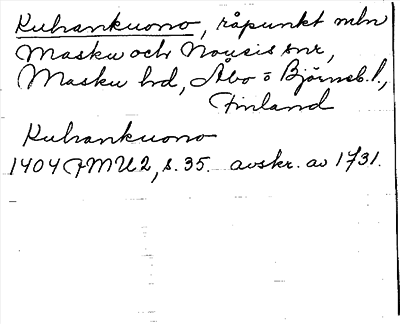 Kuhankuono, råpunkt mln
Masku och Nousis snr,
Masku hd, Åbo o Björneb. l.,
Finland
Kuhankuono
1404 FMU 2, s. 35. avskr. av 1731.